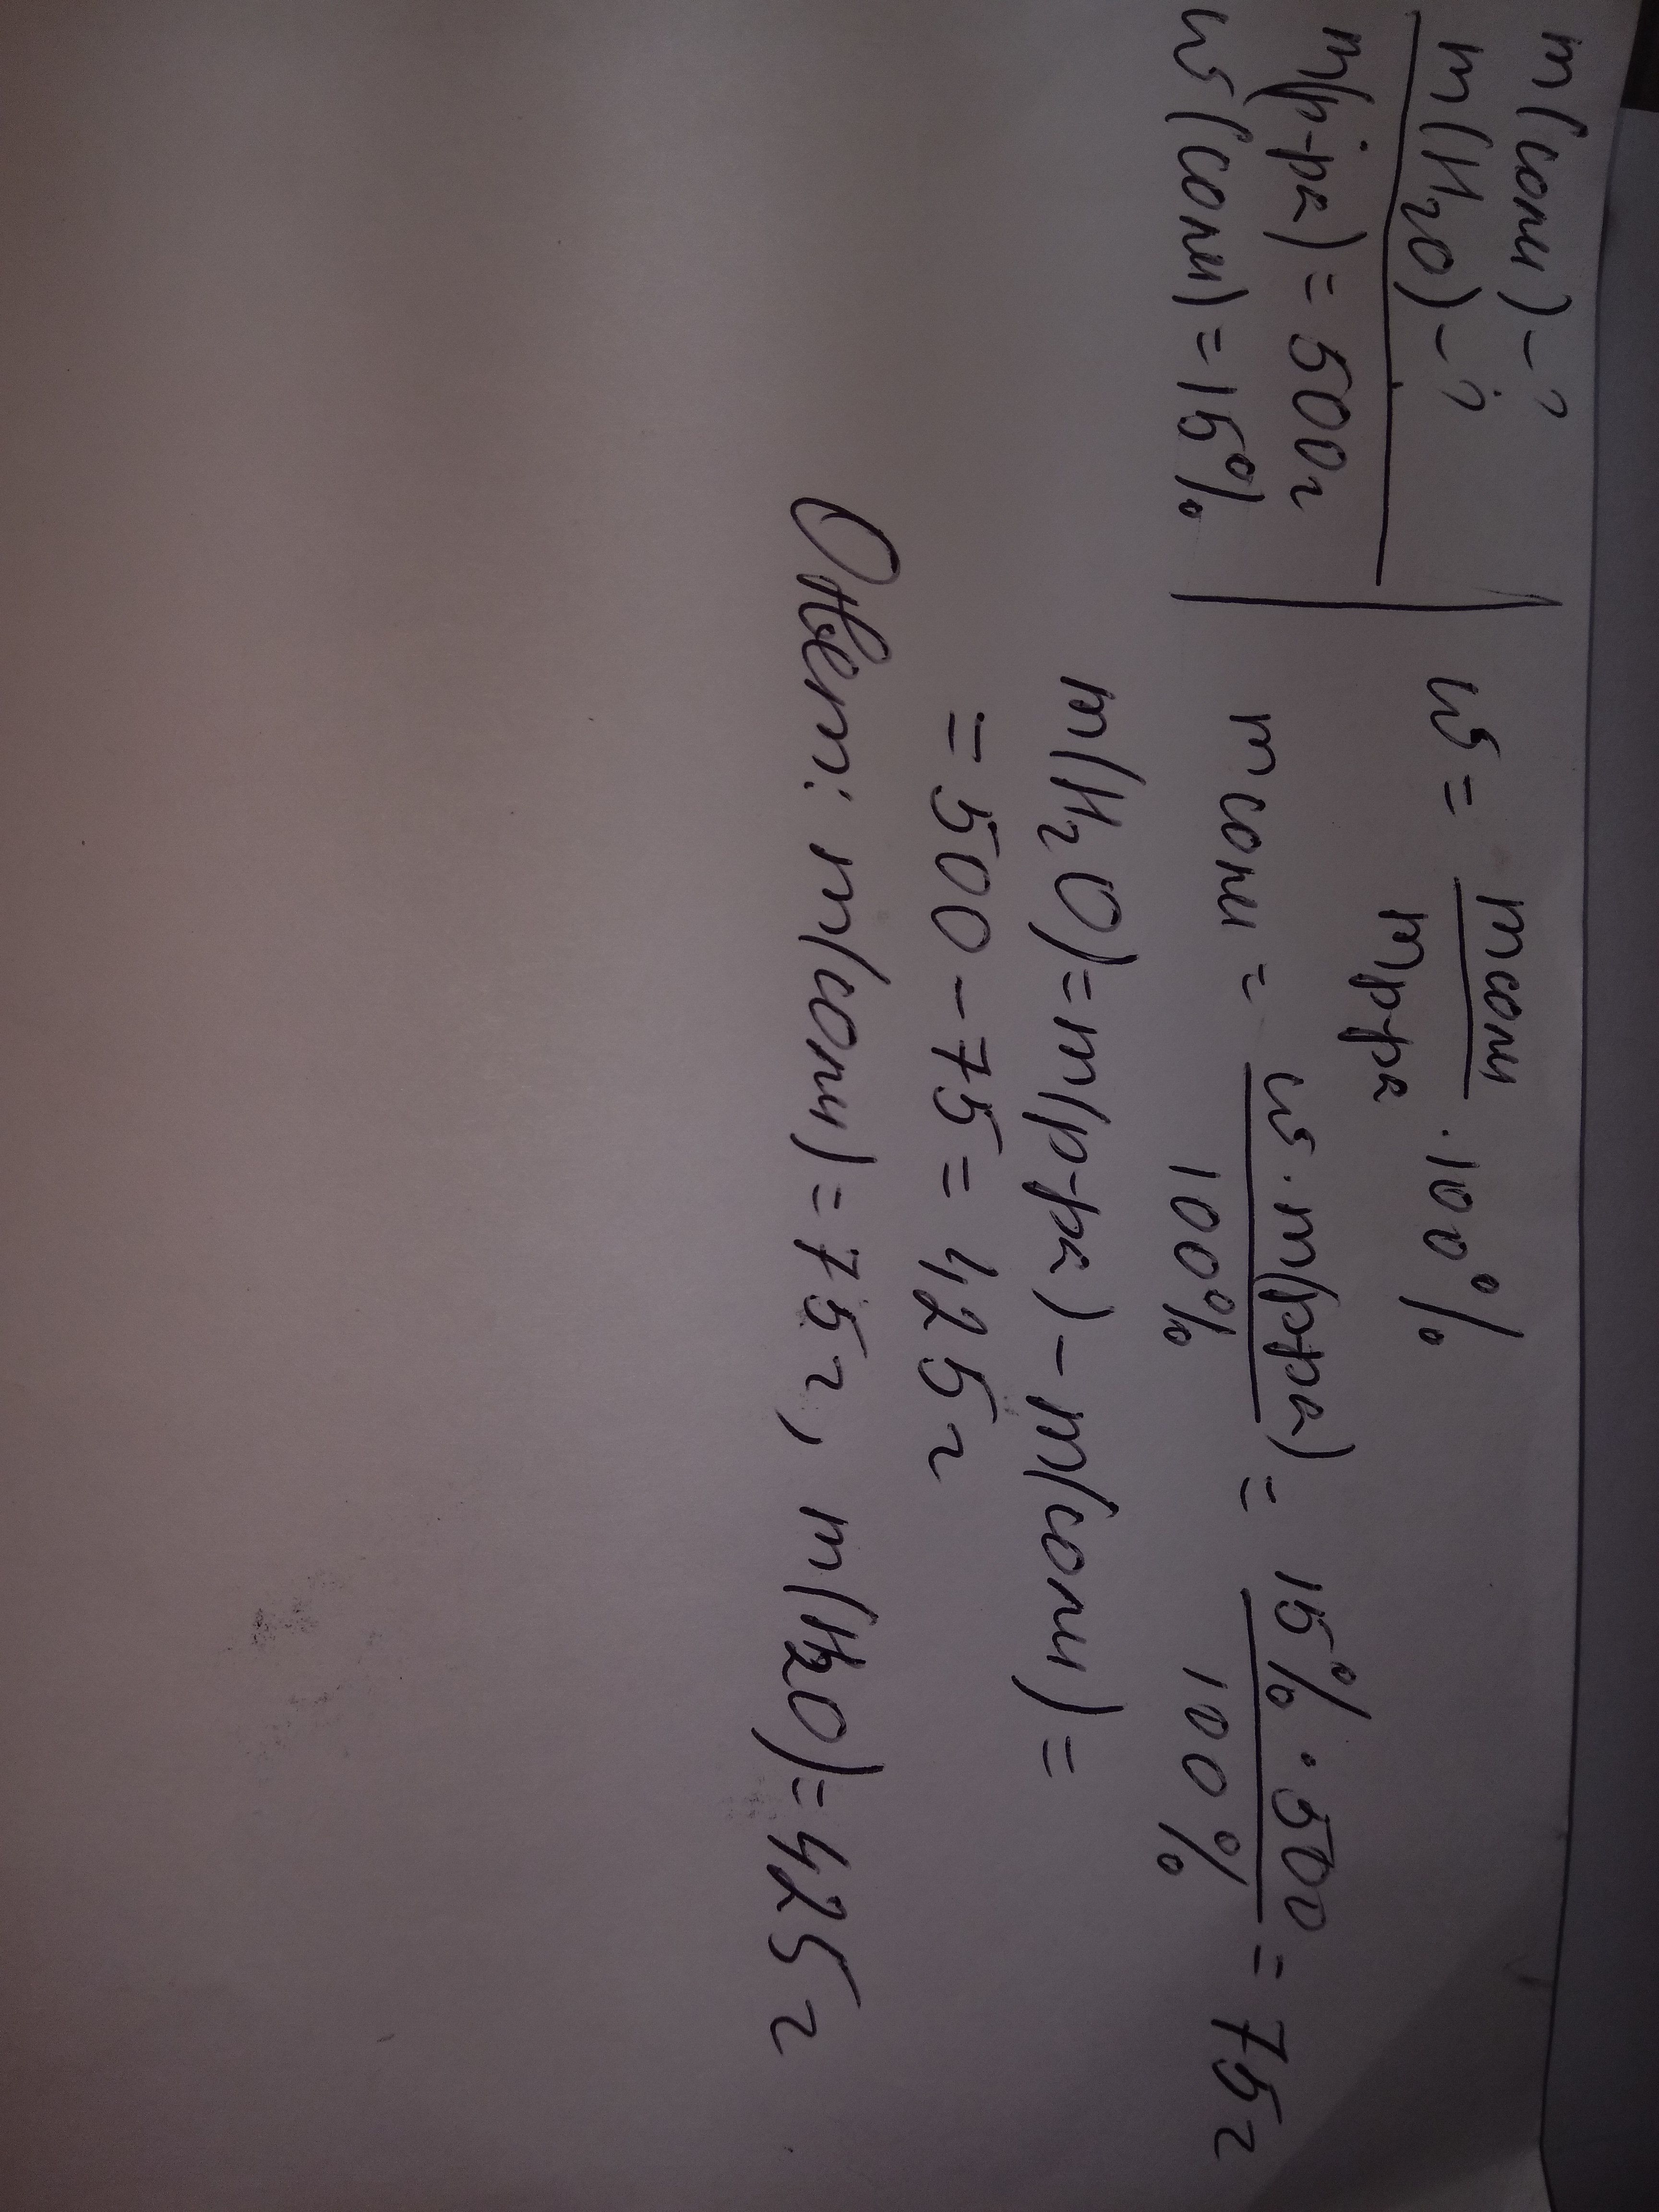 m(соли) - ?
m(H₂O) - ?
m(р-ра) = 500г
ω(соли) = 15%
ω = m соли / m р-ра · 100%
m соли = ω · m(р-ра) / 100% = 15% · 500 / 100% = 75г
m(H₂O) = m(р-ра) - m(соли) =
= 500 - 75 = 425г
Ответ: m(соли) = 75г, m(H₂O) = 425г